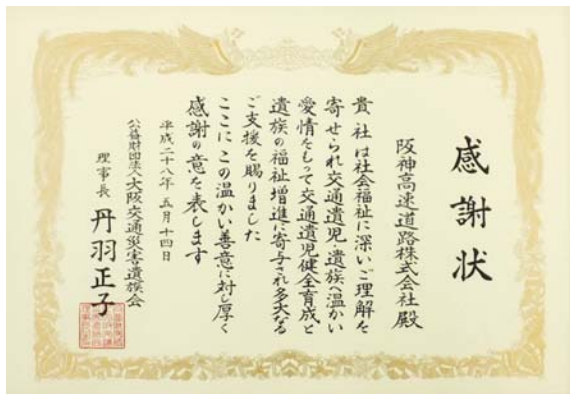 感謝状
阪神高速道路株式会社殿
貴社は社会福祉に深いご理解を
寄せられ交通遺児・遺族へ温かい
愛情をもって交通遺児健全育成と
遺族の福祉増進に寄与され多大なる
ご支援を賜りました
ここにこの温かい善意に対し厚く
感謝の意を表します
平成二十八年五月十四日
公益財団法人大阪交通災害遺族会
理事長 丹羽正子